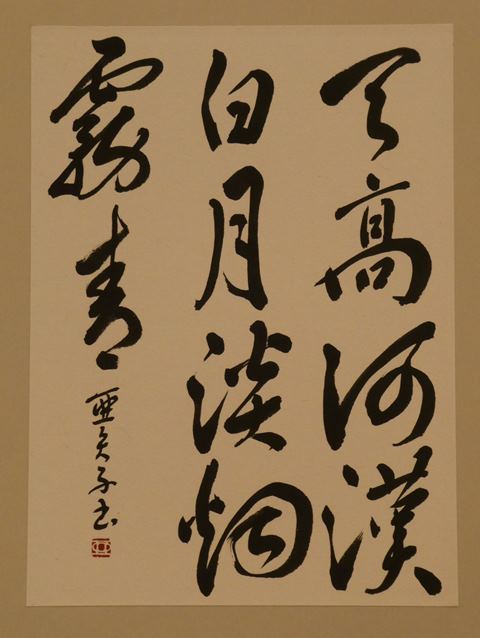 天高河漢
白月淡烟
霧青
亜矢子書